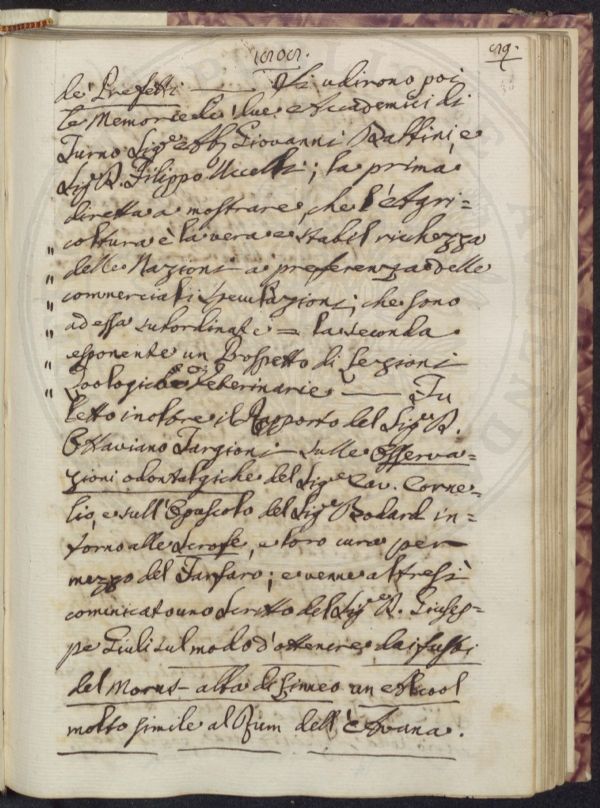 1808. 59.
de' Prefetti —— Si udirono poi
le Memorie de' due Accademici di
Turno Sig.e Ab. Giovanni Raffini, e
Sig. D. Filippo Uccelli; la prima
diretta a mostrare, che l'Agri=
" coltura è la vera e stabil richezza
" delle Nazioni a preferenza delle
" commerciali speculazioni, che sono
" ad essa subordinate = la seconda
" esponente un Prospetto di Lezioni
" Zoologiche Veterinarie —— Fu
letto inoltre il Rapporto del Sig.e D.
Ottaviano Targioni sulle Osserva=
zioni odontalgiche del Sig.e Cav. Corne=
lio, e sull'Opuscolo del Sig.e Bodard in=
torno alle Scrofe, e loro cura per
mezzo del Farfaro; e venne altresì
comunicato uno Scritto del Sig.e D. Giusep=
pe Giuli sul modo d'ottenere dai frutti
del Morus alba di Linneo un Alcool
molto simile al Rum dell'Avana.